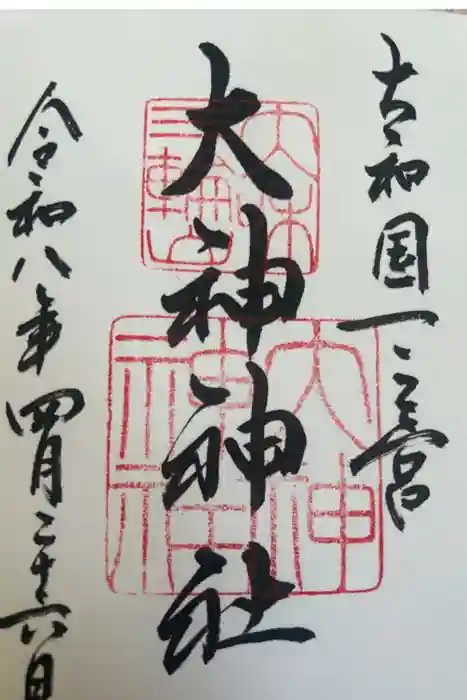 大和国一之宮
大神神社
令和八年四月二十六日
三輪山
大神
神社